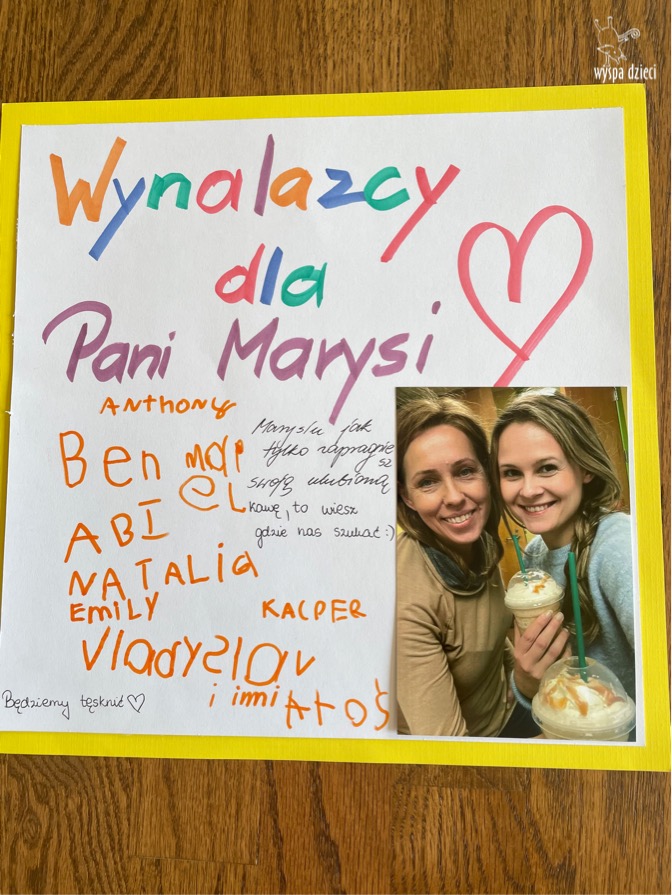 wyspa dzieci
Wynalazcy
dla
Pani Marysi
ANthoNy
Ben
ABI
NATALia
EMILY
Marysiu jak
tylko zapragnie
sz
swoją ulubioną
kawę, to wiesz
gdzie nas szukać :)
KACPER
Vladyslav
i inni
Będziemy tęsknić ♡